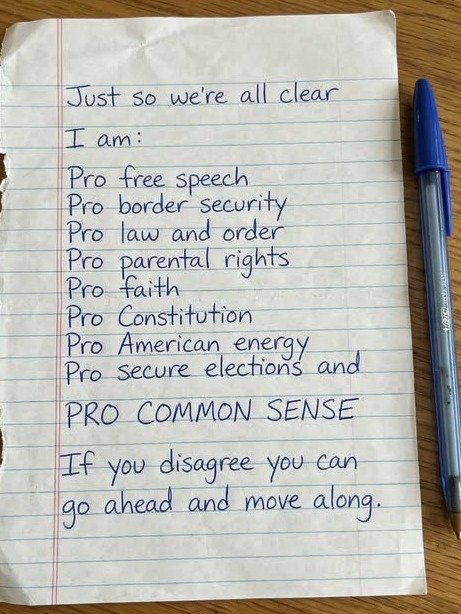 Just so we're all clear
I am:
Pro free speech
Pro border security
Pro law and order
Pro parental rights
Pro faith
Pro Constitution
Pro American energy
Pro secure elections and
PRO COMMON SENSE
If you disagree you can
go ahead and move along.